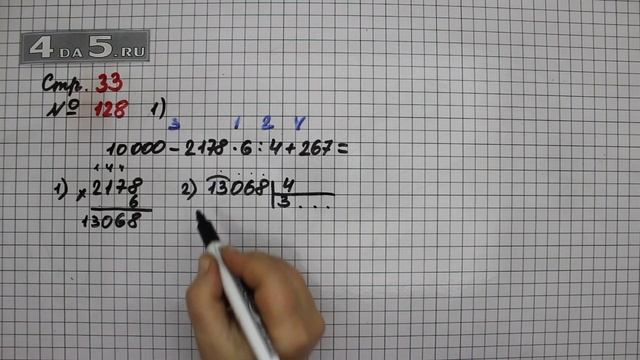 4 DA 5.RU
Стр. 33
№ 128 1)
3 1 2 4
10000 - 2178 · 6 : 4 + 267 =
1) 2178 2) 13068 4
× 6 3 . . .
13068